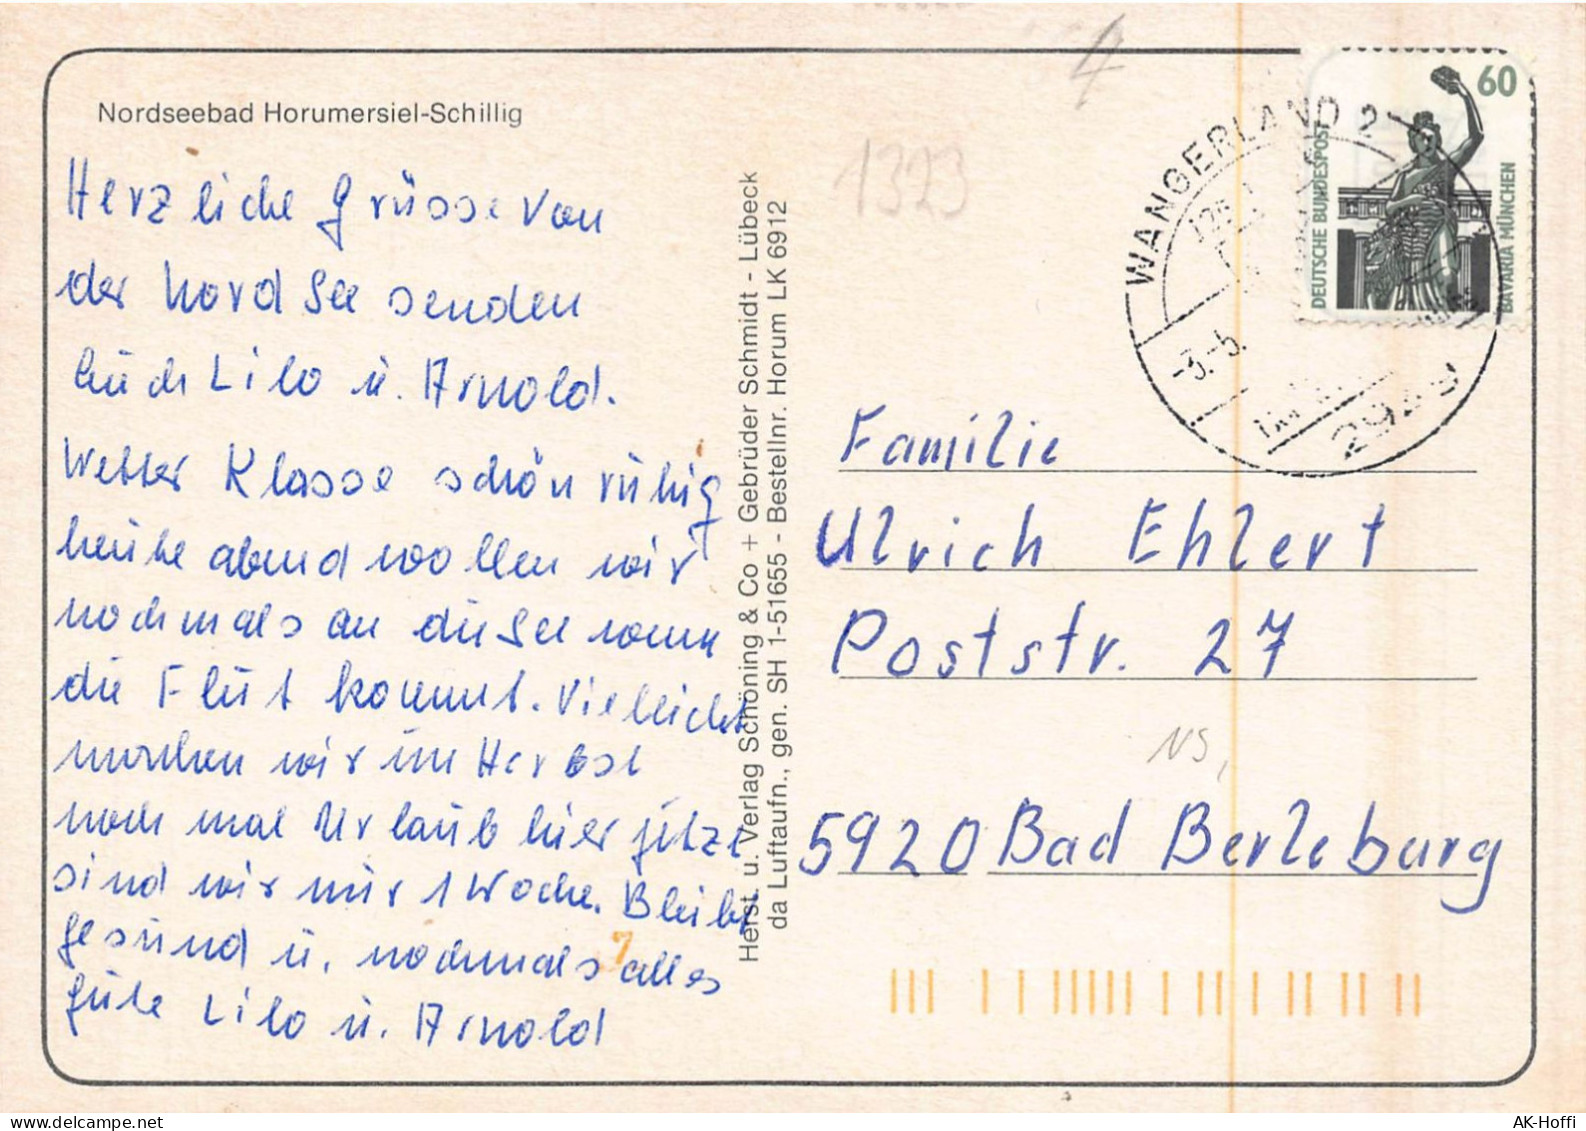 Nordseebad Horumersiel-Schillig
Herzliche Grüsse von
der Nord See senden
Euch Lilo u. Arnold.
Wetter Klasse schön ruhig
heute abend wollen wir
nochmals an die See wenn
die Flut kommt. Vielleicht
machen wir im Herbst
noch mal Urlaub hier jetzt
sind wir nur 1 Woche. Bleibt
gesund u. nochmals alles
gute Lilo u. Arnold
Herst. u. Verlag Schöning & Co + Gebrüder Schmidt - Lübeck
da Luftaufn., gen. SH 1-51655 - Bestellnr. Horum LK 6912
4
1323
60
DEUTSCHE BUNDESPOST
BAVARIA MÜNCHEN
WANGERLAND 2
-3.-5.
Familie
Ulrich Ehlert
Poststr. 27
NS,
5920 Bad Berleburg
7
AK-Hoffi